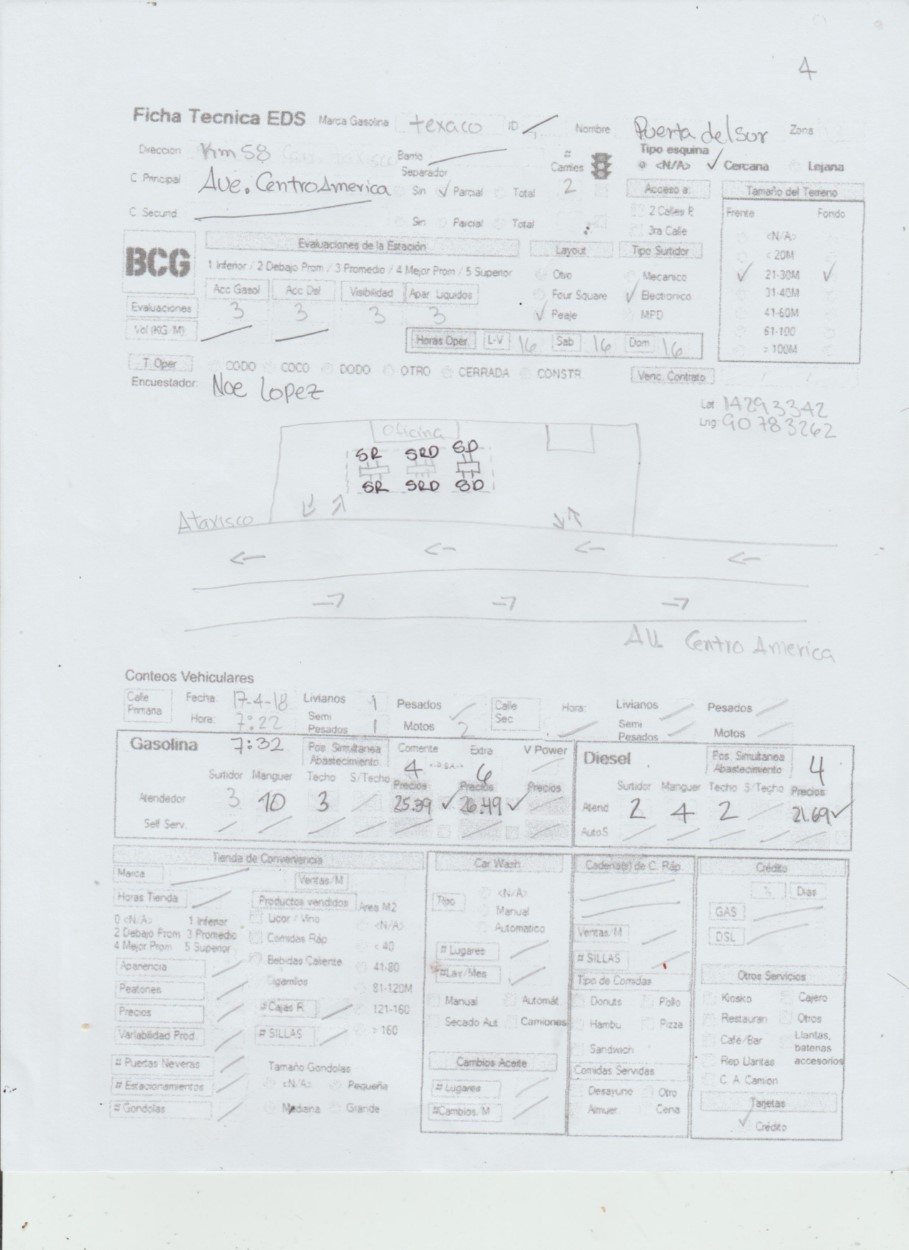 4
Ficha Tecnica EDS Marca Gasolina texaco ID Nombre Puerta del sur Zona
Direccion Km 58 Barrio
Carriles 2
Tipo esquina
<N/A> Cercana Lejana
C Principal Ave. Centro America
Separador
Sin Parcial Total
Acceso a:
Tamaño del Terreno
C Secund.
Sin Parcial Total
2 Calles P.
3ra Calle
Frente Fondo
<N/A>
< 20M
21-30M
31-40M
41-60M
61-100
> 100M
BCG
Evaluaciones de la Estación
Layout
Tipo Surtidor
1 Inferior / 2 Debajo Prom / 3 Promedio / 4 Mejor Prom / 5 Superior
Otro
Four Square
Peaje
Mecanico
Electronico
MPD
Acc Gasol Acc Dsl Visibilidad Apar Liquidos
Evaluaciones 3 3 3 3
Vol (KG/M)
Horas Oper. L-V 16 Sab 16 Dom 16
T. Oper CODO COCO DODO OTRO CERRADA CONSTR
Venc. Contrato
Encuestador: Noe Lopez
Lat 14293342
Lng 90783262
Oficina
SR SRD SD
SR SRD SD
Ataxisco
AU Centro America
Conteos Vehiculares
Calle Primaria
Fecha: 17-4-18 Livianos 1 Pesados
Hora: 7:22 Semi Pesados 1 Motos 2
Calle Sec
Hora: Livianos Pesados
Semi Pesados Motos
Gasolina 7:32
Pos. Simultanea Abastecimiento
Corriente 4 Extra 6 V Power
Surtidor Manguer Techo S/Techo Precios Precios Precios
Atendedor 3 10 3 25.39 26.49
Self Serv.
Diesel
Pos. Simultanea Abastecimiento 4
Surtidor Manguer Techo S/Techo Precios
Atend 2 4 2 21.69
AutoS
Tienda de Conveniencia
Marca
Ventas/M
Horas Tienda
Productos vendidos Area M2
0 <N/A> 1 Inferior
2 Debajo Prom 3 Promedio
4 Mejor Prom 5 Superior
Licor / Vino
Comidas Ráp
Bebidas Caliente
Cigarrillos
<N/A>
< 40
41-80
81-120M
121-160
> 160
Apariencia
Peatones
Precios
Variabilidad Prod.
# Cajas R.
# SILLAS
# Puertas Neveras
# Estacionamientos
# Gondolas
Tamaño Gondolas
<N/A> Pequeña
Mediana Grande
Car Wash
Tipo
<N/A>
Manual
Automatico
# Lugares
#Lav/Mes
Manual Automát.
Secado Aut. Camiones
Cambios Aceite
# Lugares
#Cambios/M
Cadena(s) de C. Ráp
Ventas/M
# SILLAS
Tipo de Comidas
Donuts Pollo
Hambu Pizza
Sandwich
Comidas Servidas
Desayuno Otro
Almuer. Cena
Crédito
% Dias
GAS
DSL
Otros Servicios
Kiosko Cajero
Restauran Otros
Café/Bar
Llantas, baterias accesorios
Rep Llantas
C. A. Camion
Tarjetas
Crédito